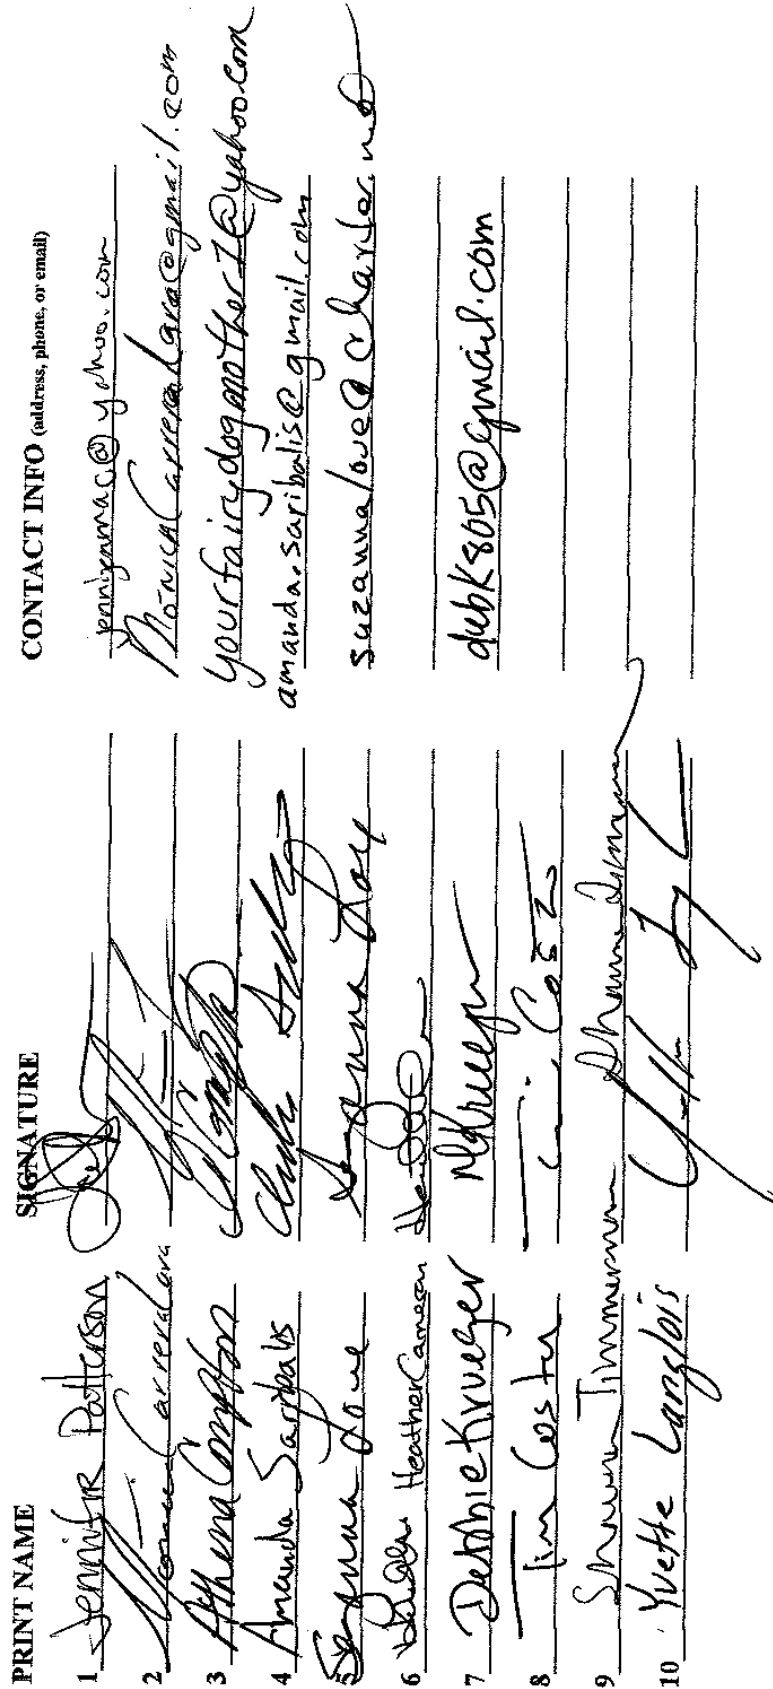 PRINT NAME SIGNATURE CONTACT INFO (address, phone, or email)
1 Jennifer Patterson jennlynnmac@yahoo.com
2 Monica Carrera Lara MonicaCarreraLara@gmail.com
3 Athena Compton yourfairydogmother1@yahoo.com
4 Amanda Saribalis amanda.saribalis@gmail.com
5 Suzanna Love Suzanna Love suzannalove@charter.net
6 Heather Cameron
7 Debbie Krueger DKrueger debk805@gmail.com
8 Tim Costa Tim Costa
9 Shawn Timmerman Shawn Timmerman
10 Yvette Langlois